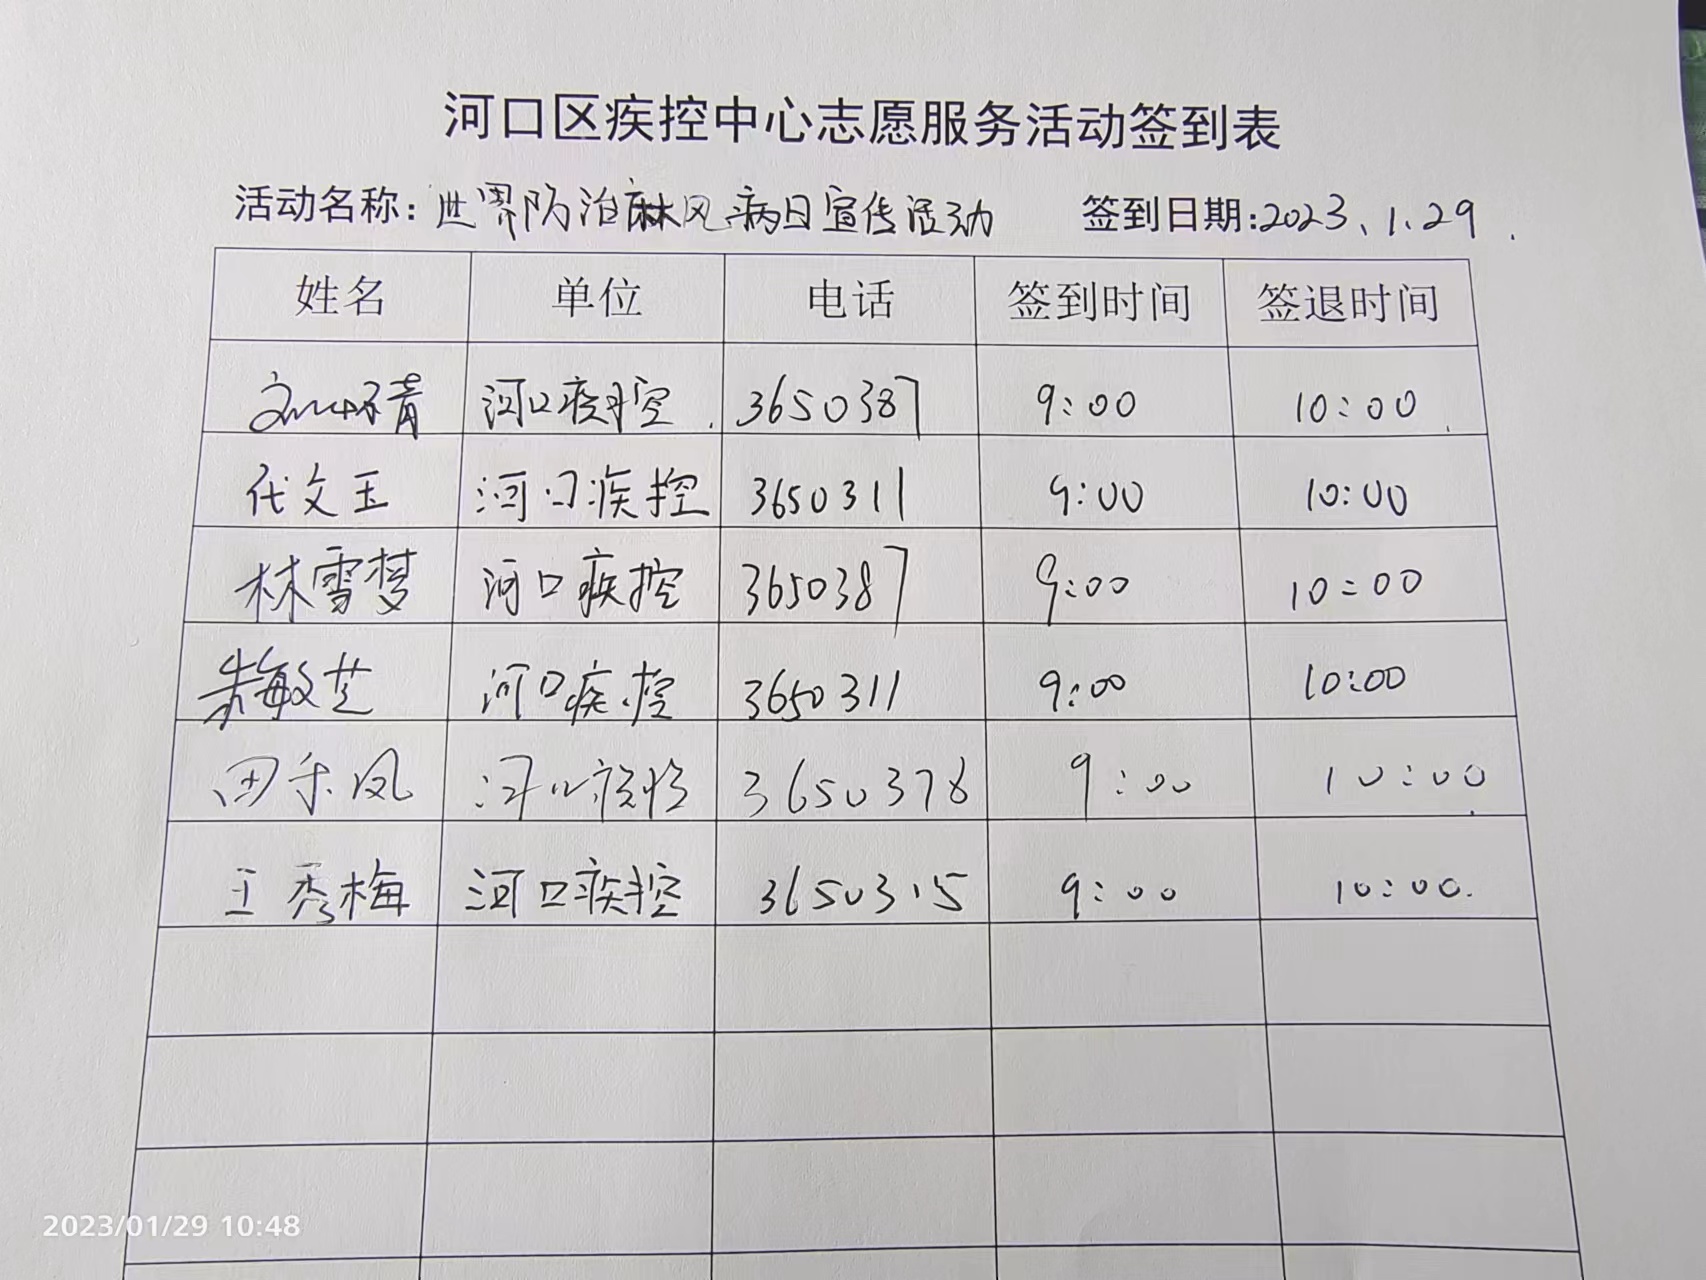 河口区疾控中心志愿服务活动签到表
活动名称：世界防治麻风病日宣传活动 签到日期:2023、1.29.
姓名 单位 电话 签到时间 签退时间
河口疾控 3650387 9:00 10:00
代文玉 河口疾控 3650311 9:00 10:00
林雪梦 河口疾控 3650387 9:00 10:00
敏芝 河口疾控 3650311 9:00 10:00
田乐凤 河口疾控 3650378 9:00 10:00
王秀梅 河口疾控 3650315 9:00 10:00.
2023/01/29 10:48